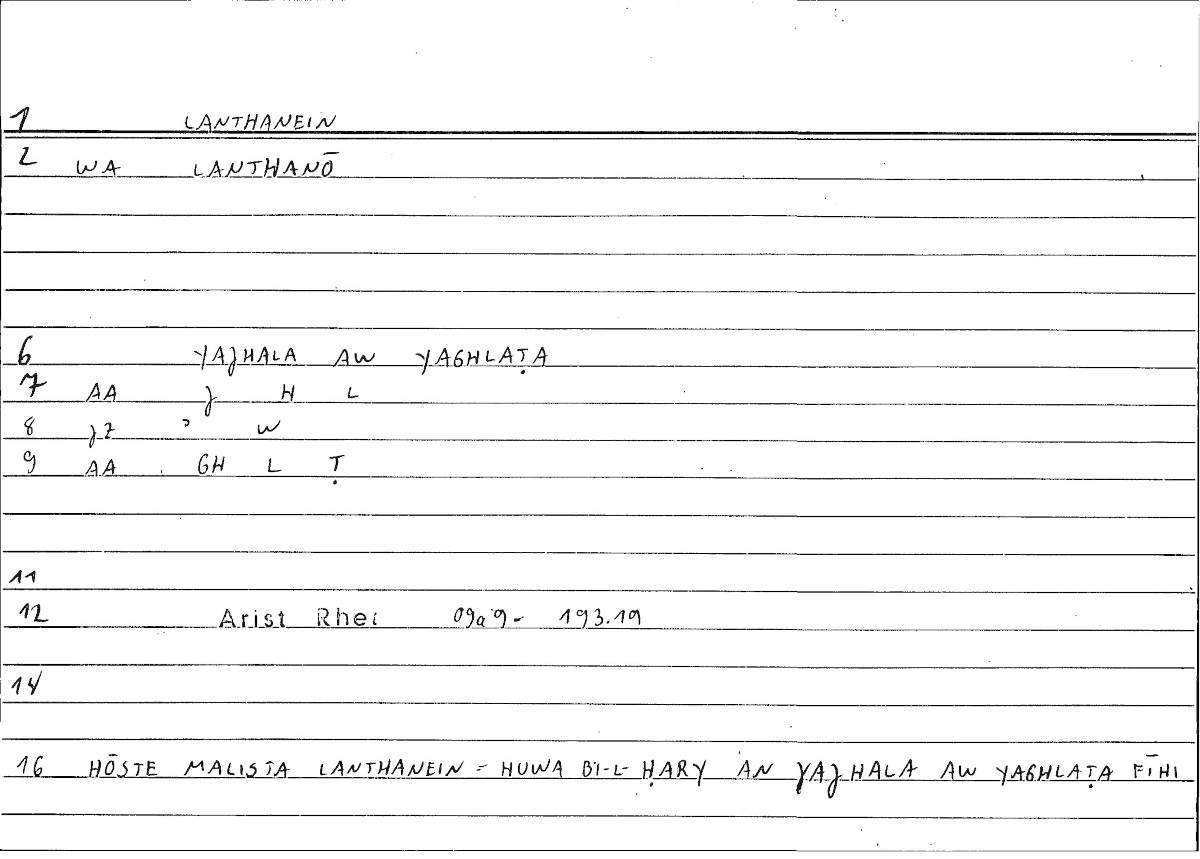 1 LANTHANEIN
2 WA LANTHANŌ
6 YAJHALA AW YAGHLAṬA
7 AA J H L
8 JZ ʾ W
9 AA GH L Ṭ
11
12 Arist Rhei 09a9- 193.19
14
16 HŌSTE MALISTA LANTHANEIN = HUWA BI-L-ḤARY AN YAJHALA AW YAGHLAṬA FĪHI